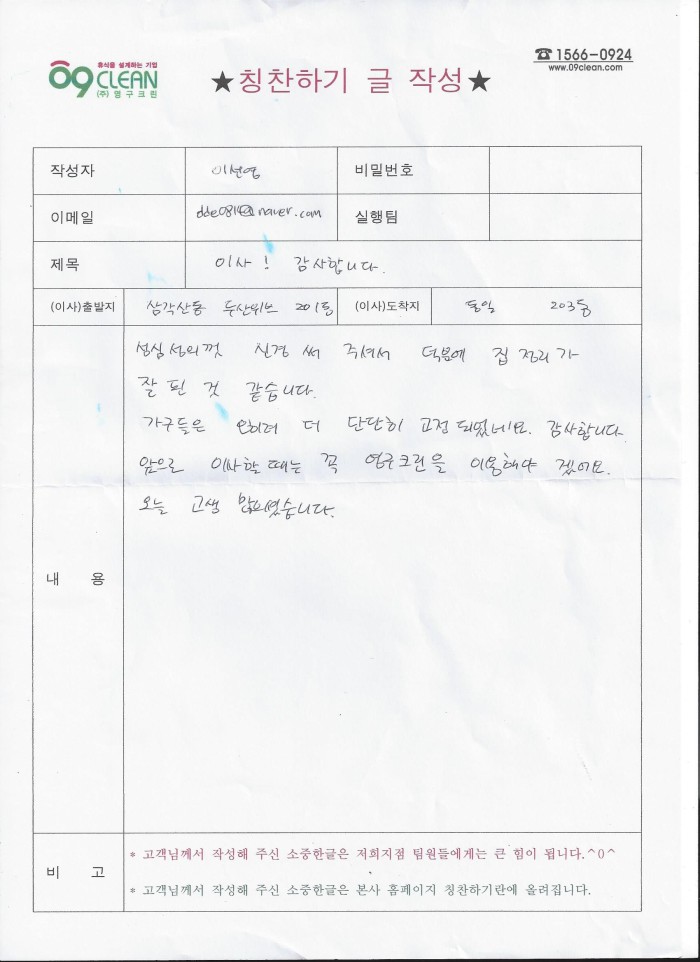 휴식을 설계하는 기업
09 CLEAN
(주)영구크린
★칭찬하기 글 작성★
☎ 1566-0924
www.09clean.com
작성자 이선영 비밀번호
이메일 dde0814@naver.com 실행팀
제목 이사! 감사합니다.
(이사)출발지 삼각산동 두산위브 201동 (이사)도착지 동일 203동
성심성의껏 신경 써 주셔서 덕분에 집 정리가
잘 된 것 같습니다.
가구들은 오히려 더 단단히 고정되었네요. 감사합니다.
앞으로 이사할 때는 꼭 영구크린을 이용해야 겠어요.
오늘 고생 많으셨습니다.
내 용
비 고
* 고객님께서 작성해 주신 소중한글은 저희지점 팀원들에게는 큰 힘이 됩니다.^0^
* 고객님께서 작성해 주신 소중한글은 본사 홈페이지 칭찬하기란에 올려집니다.